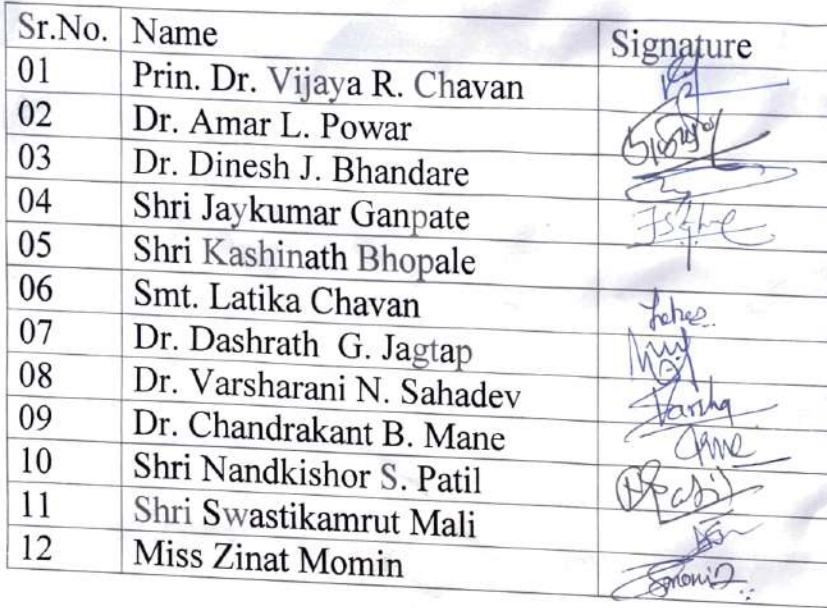 Sr.No. Name Signature
01 Prin. Dr. Vijaya R. Chavan
02 Dr. Amar L. Powar
03 Dr. Dinesh J. Bhandare
04 Shri Jaykumar Ganpate
05 Shri Kashinath Bhopale
06 Smt. Latika Chavan
07 Dr. Dashrath G. Jagtap
08 Dr. Varsharani N. Sahadev Varsha
09 Dr. Chandrakant B. Mane
10 Shri Nandkishor S. Patil
11 Shri Swastikamrut Mali
12 Miss Zinat Momin